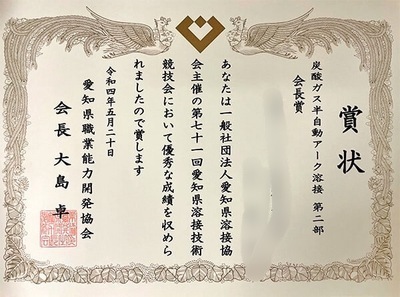 賞状
炭酸ガス半自動アーク溶接 第二部
会長賞
あなたは一般社団法人愛知県溶接協
会主催の第七十一回愛知県溶接技術
競技会において優秀な成績を収めら
れましたので賞します
令和四年五月二十日
愛知県職業能力開発協会
会長 大島 卓